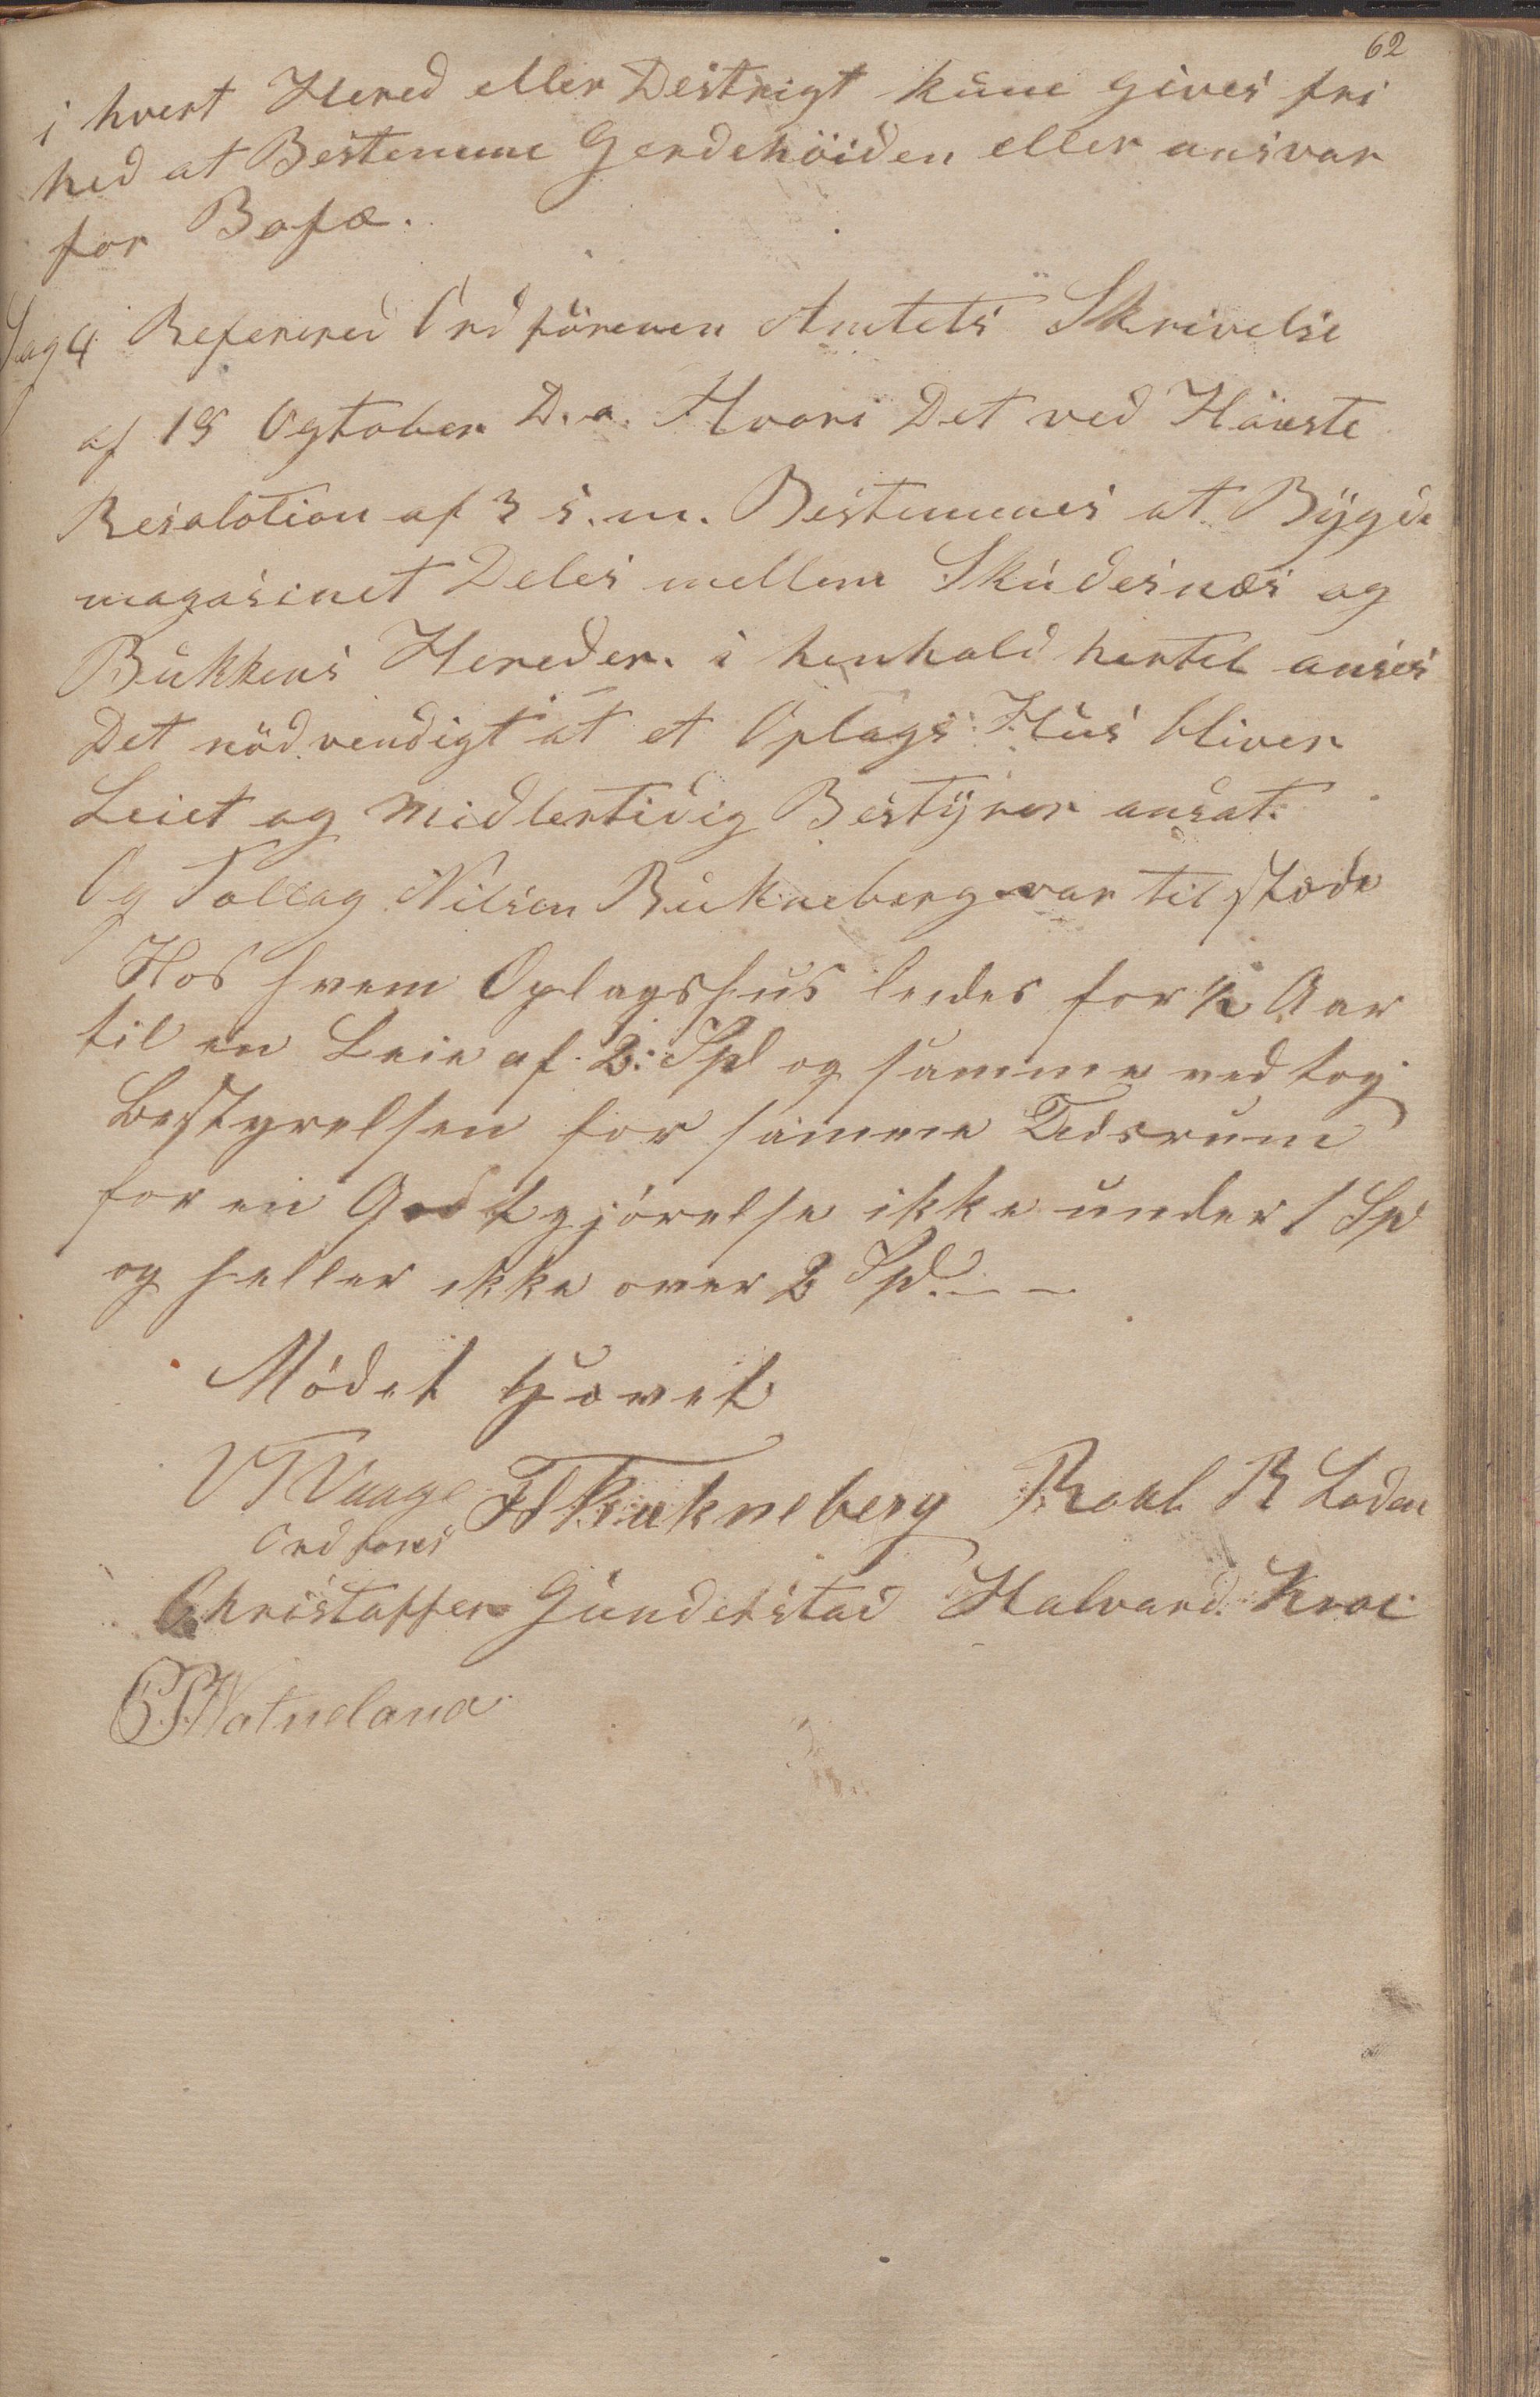 62
i hvert Hered eller Destrigt kune gives fri
hed at Bestemme Gerdehöiden eller ansvar
for Bofæ.
Sag 4 Referered Ordföreren Amtets Skrivelse
af 19 Ogtober D. a. Hvori Det ved Höieste
Resolotion af 3 s. m. Bestemmes at Bÿgde
magasinet Deles mellem Skudesnæs og
Bukkens Hereder. i henhold hertel anses
Det nödvendigt at et Oplags Hus bliver
Leiet og Midlertidig Bestÿrer ansat.
Og Tollag Nilsen Bukneberg var til stæde
Hos hvem Oplagshus leides for ½ Aar
til en Leie af 2 Spd og samme vedtog
Bestyrelsen for samme Tidsrum
for en Godtgjörelse ikke under 1 Spd
og heller ikke over 2 Spd. — —
Mödet hævet
VT Vaage Bukneberg Roal R Loden
Ordförer
Christoffer Gundetstad Halvard Kroe
Vatneland